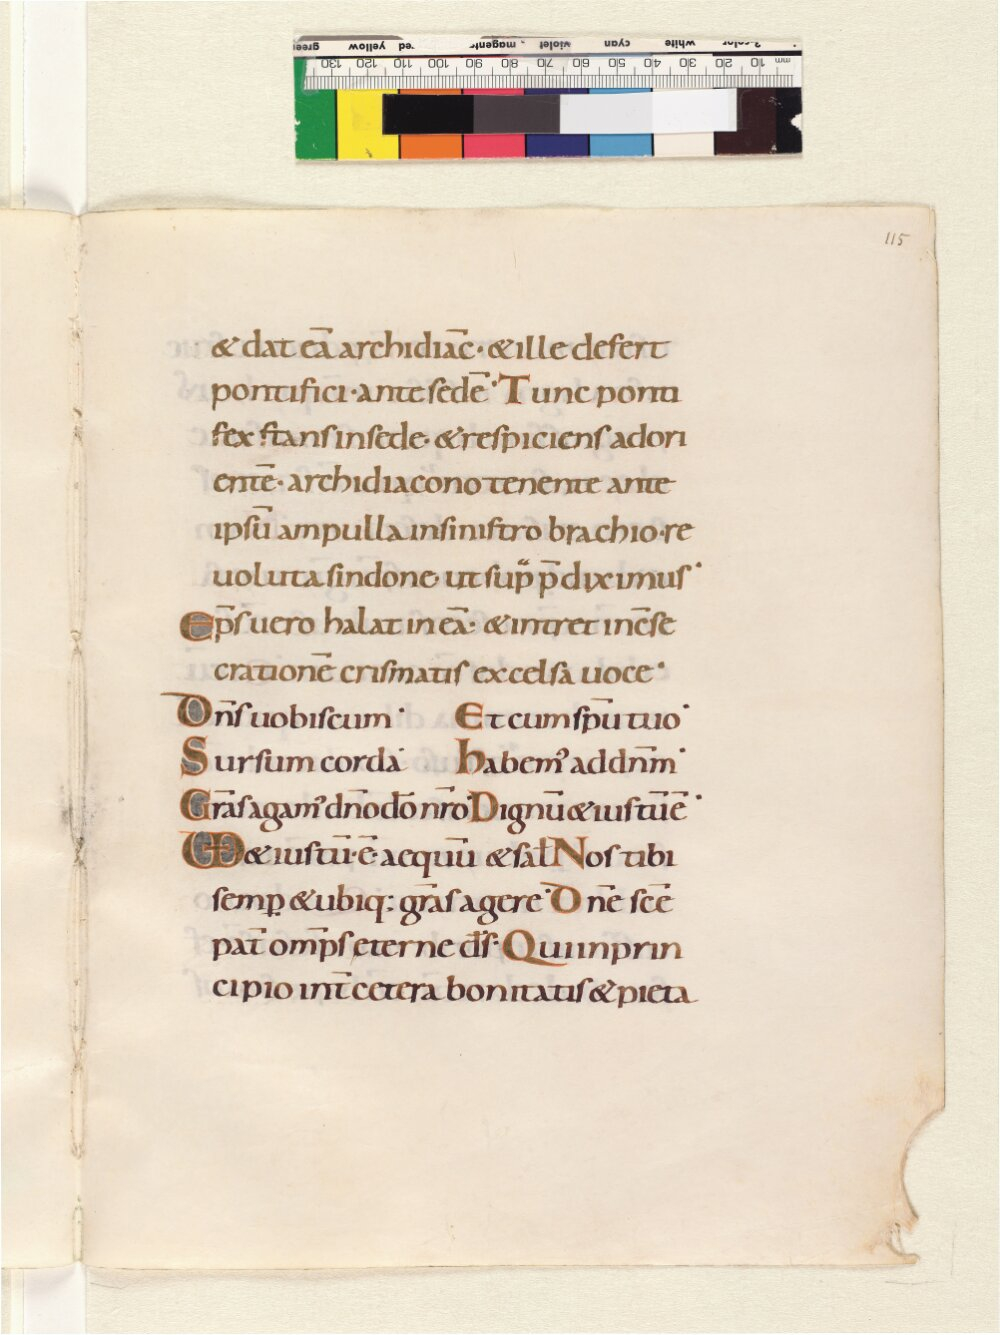 115
& dat eā archidiac̄· & ille defert
pontifici· ante sedē· Tunc ponti
fex stans in sede· & respiciens ad ori
entē· archidiacono tenente ante
ipsū ampulla in sinistro brachio· re
uoluta sindone· ut sup̄ p̄diximus·
ep̄s uero halat in eā· & intret in c̄se
crationē crismatis excelsa uoce·
Dn̄s uobiscum· Et cum sp̄u tuo·
Sursum corda· habem' ad dnm̄·
Gr̄as agam' dn̄o dō nr̄o· Dignū & iustū ē·
UD & iustū· ē· aequū & sal̄ Nos tibi
semp & ubiq: gr̄as agere· Dn̄e sc̄e
pat̄ omp̄s ęterne ds̄· Qui in prin
cipio int̄ cetera bonitatis & pieta
green yellow red magenta violet cyan white 3-color
130 120 110 100 90 80 70 60 50 40 30 20 10 mm